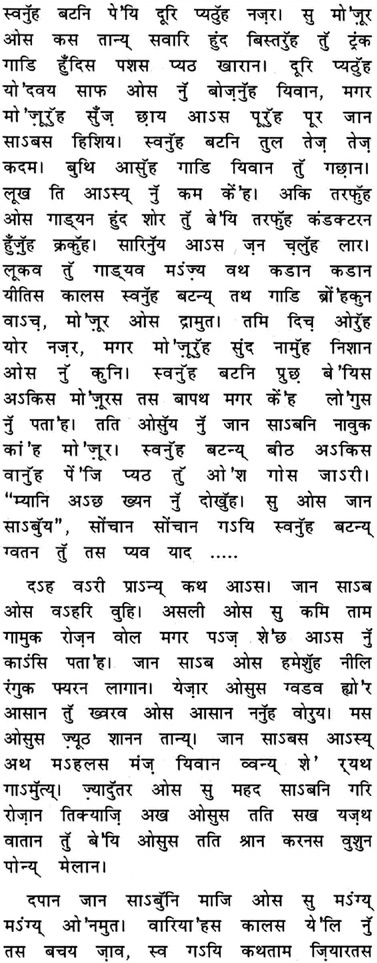 स्वनुॅह बटनि पे'यि दूरि प्यठुॅह नज़र। सु मो'ज़ूर
ओस कस तान्य् सवारि हुंद बिस्तरुॅह तुॅ ट्रंक
गाडि हुॅंदिस पशस प्यठ खारान। दूरि प्यठुॅह
यो'दवय साफ ओस नुॅ बोज़नुॅह यिवान, मगर
मो'ज़ूरुॅह सुॅंज़ छ़ाय आऽस पूरुॅह पूर जान
साऽबस हिशिय। स्वनुॅह बटनि तुल तेज़ तेज़
कदम। बुथि आसुॅह गाडि यिवान तुॅ गछ़ान।
लूख ति आऽस्य् नुॅ कम कें'ह। अकि तरफुॅह
ओस गाड्यन हुंद शोर तुॅ बे'यि तरफुॅह कंडक्टरन
हुॅंज़ुॅह क्रकुॅह। सारिनुॅय आऽस ज़न च़लुॅह लार।
लूकव तुॅ गाड्यव मऽंज्य वथ कडान कडान
यीतिस कालस स्वनुॅह बटन्य् तथ गाडि ब्रों'हकुन
वाऽच़, मो'ज़ूर ओस द्रामुत। तमि दिच़ ओरुॅह
योर नज़र, मगर मो'ज़ूरुॅह सुंद नामुॅह निशान
ओस नुॅ कुनि। स्वनुॅह बटनि प्रुछ़ बे'यिस
अऽकिस मो'ज़ूरस तस बापथ मगर कें'ह लो'गुस
नुॅ पताह। तति ओसुॅय नुॅ जान साऽबनि नावुक
कां'ह मो'ज़ूर। स्वनुॅह बटन्य् बीठ अऽकिस
वानुॅह पें'जि प्यठ तुॅ ओ'श गोस जाऽरी।
“म्यानि अऽछ ख्यन नुॅ दोखुॅह। सु ओस जान
साऽबुॅय”, सोंचान सोंचान गऽयि स्वनुॅह बटन्य्
ग्वतन तुॅ तस प्यव याद .....
दऽह वऽरी प्राऽन्य् कथ आऽस। जान साऽब
ओस वऽहरि वुहि। असली ओस सु कमि ताम
गामुक रोज़न वोल मगर पऽज़ शे'छ आऽस नुॅ
काऽंसि पताह। जान साऽब ओस हमेशुॅह नीलि
रंगुक फ्यरन लागान। येज़ार ओसुस ग्वडव ह्यो'र
आसान तुॅ ख्वरव ओस आसान ननुॅह वोरुय। मस
ओसुस ज़्यूठ शानन तान्य्। जान साऽबस आऽस्य्
अथ मऽहलस मंज़ यिवान व्वन्य् शे' र्‌यथ
गाऽमुॅत्य्। ज़्यादुॅतर ओस सु महद साऽबनि गरि
रोज़ान तिक्याज़ि अख ओसुस तति सख यज़थ
वातान तुॅ बे'यि ओसुस तति श्रान करनस वुशुन
पोन्य् मेलान।
दपान जान साऽबुॅनि माजि ओस सु मऽंग्य्
मऽंग्य् ओ'नमुत। वारियाहस कालस ये'लि नुॅ
तस बचय ज़ाव, स्व गऽयि कथताम ज़ियारतस